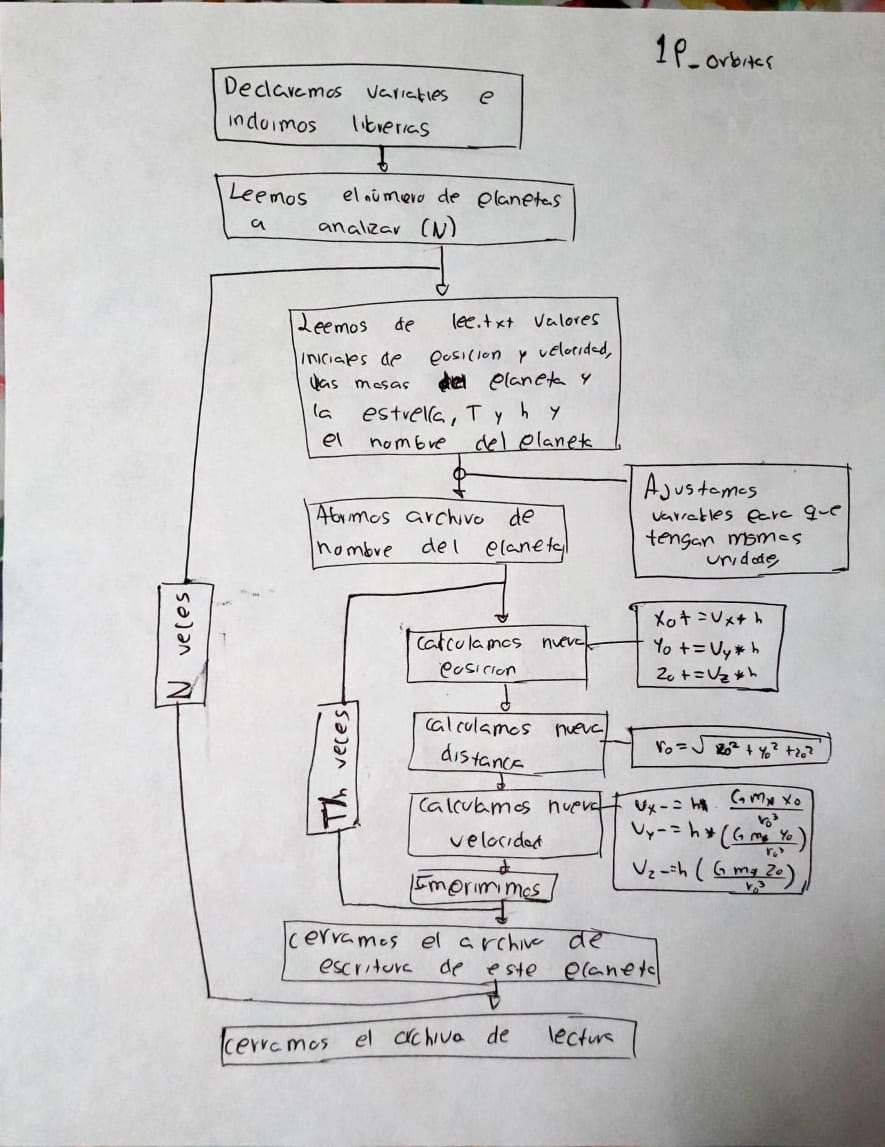 1P_orbitas
Declaramos variables e
incluimos librerias
Leemos el número de planetas
a analizar (N)
Leemos de lee.txt valores
iniciales de posicion y velocidad,
las masas del planeta y
la estrella, T y h y
el nombre del planeta
Ajustamos
variables para que
tengan mismas
unidades
Abrimos archivo de
nombre del planeta
N veces
Calculamos nueva
posicion
x₀ += Vx * h
y₀ += Vy * h
z₀ += Vz * h
Th veces
Calculamos nueva
distancia
r₀ = √x₀² + y₀² + z₀²
Calculamos nueva
velocidad
Vx -= h* G m* x₀ / r₀³
Vy -= h * (G m* y₀ / r₀³)
Vz -= h (G m* z₀ / r₀³)
Imprimimos
cerramos el archivo de
escritura de este planeta
cerramos el archivo de lectura